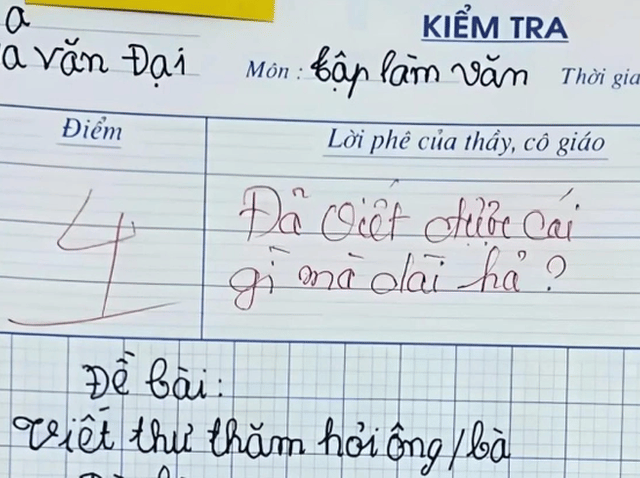 a
KIỂM TRA
a văn Đại
Môn : tập làm văn Thời gia
Điểm
Lời phê của thầy, cô giáo
4
Đã viết được cái
gì mà dài hả ?
Đề bài:
Viết thư thăm hỏi ông/bà